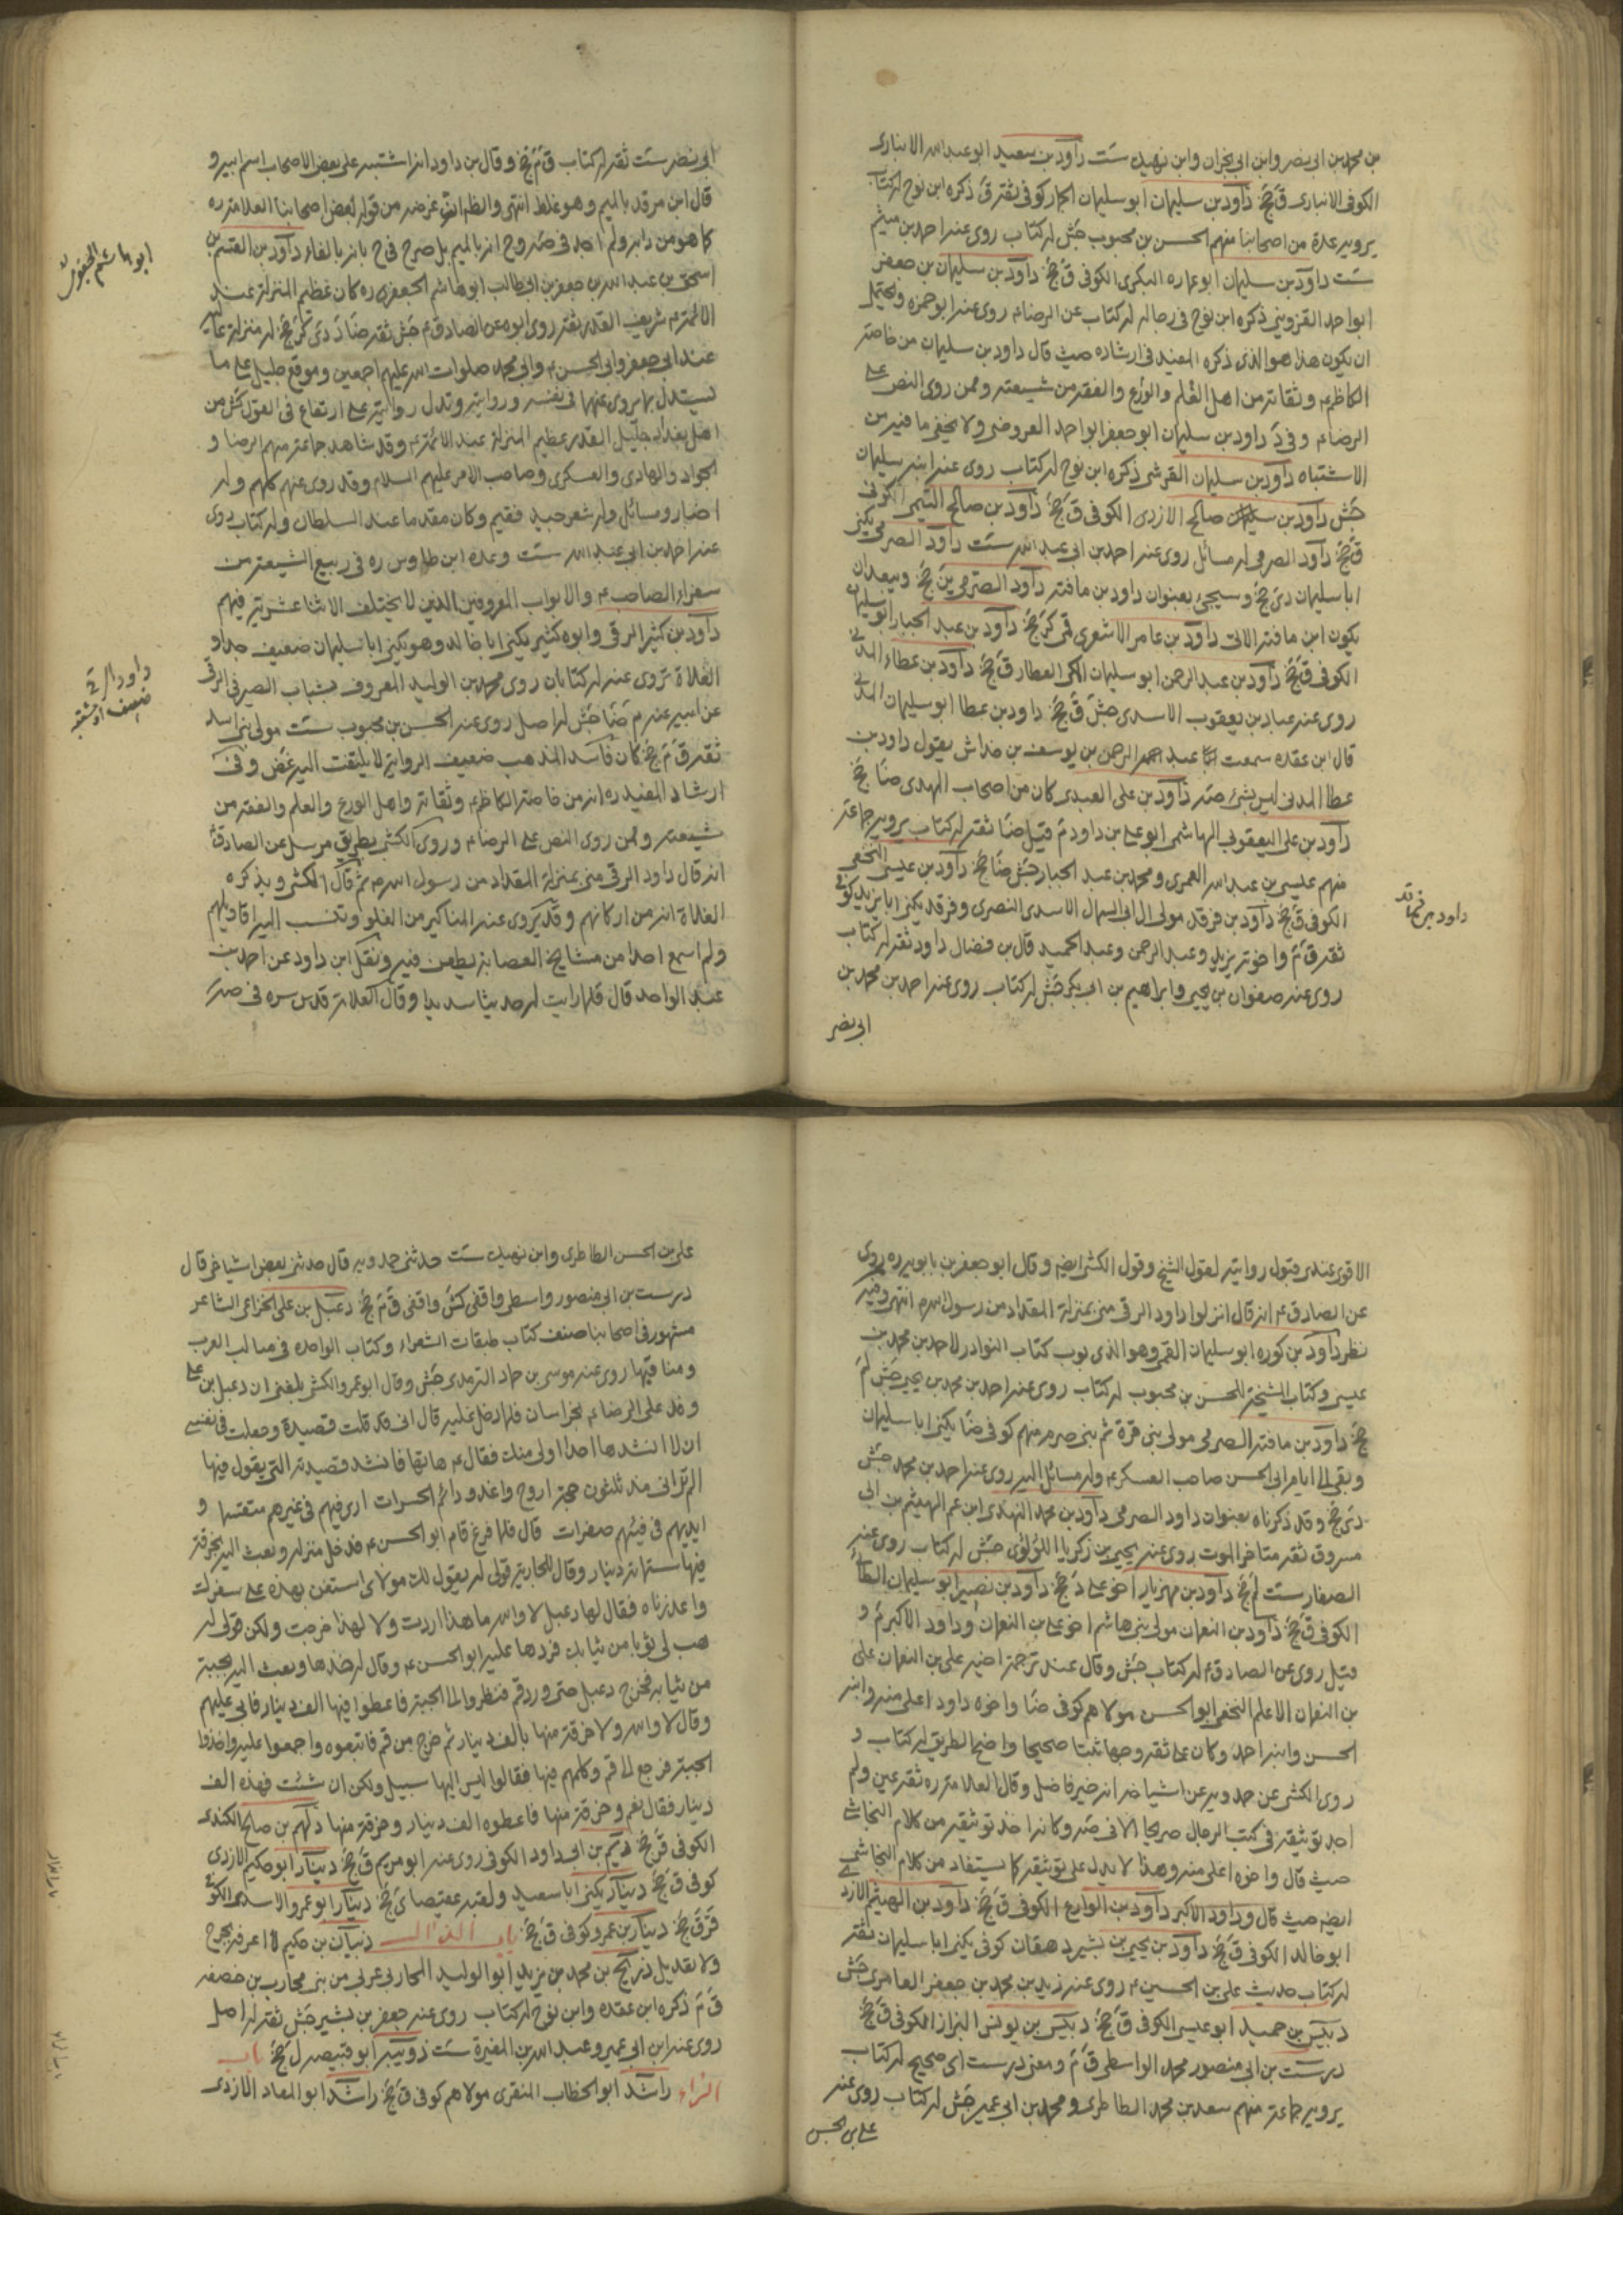 من محمد بن ابي نصر وابن ابي نجران وابن نهيك ست داود بن سعيد ابو عبد الله الانبارى
الكوفى الانبارى ق جخ داود بن سليمان ابو سليمان الحمار كوفى ثقة ق ذكره ابن نوح له كتاب
يرويه عدة من اصحابنا منهم الحسن بن محبوب جش له كتاب روى عنه احمد بن ميثم
ست داود بن سليمان ابو عماره البكرى الكوفى ق جخ داود بن سليمان بن جعفر
ابو احمد القزوينى ذكره ابن نوح فى رجاله له كتاب عن الرضاء روى عنه ابو حمزه ويحتمل
ان يكون هذا هو الذى ذكره المفيد فى ارشاده حيث قال داود بن سليمان من خاصته
الكاظم ع وثقاته من اهل العلم والورع والفقه من شيعته وممن روى النص على
الرضاء وفى د داود بن سليمان ابو جعفر ابو احمد العروضى ولا يخفى ما فيه من
الاشتباه داود بن سليمان القرشى ذكره ابن نوح له كتاب روى عنه ابنه سليمان
جش داود بن صالح الازدى الكوفى ق جخ داود بن صالح التيمى الكوفى
ق جخ داود الصرمى له مسائل روى عنه احمد بن ابى عبد الله ست داود الصرمى يكنى
ابا سليمان دى جخ وسيجئ بعنوان داود بن مافنه داود الصرمى ين جخ ويبعد ان
يكون ابن مافنه الاتى داود بن عامر الاشعرى قمى كر جخ داود بن عبد الجبار ابو سليمان
الكوفى ق جخ داود بن عبد الرحمن ابو سليمان المكى العطار ق جخ داود بن عطاء المدنى
روى عنه عباد بن يعقوب الاسدى جش ق جخ داود بن عطا ابو سليمان المدنى
قال ابن عقده سمعت عبد الرحمن بن يوسف بن خداش يقول داود بن
عطا المدنى ليس بشئ صه داود بن على العبدى كان من اصحاب المهدى ضا جخ
داود بن على اليعقوبى الهاشمى ابو على بن داود م قيل ضا ثقة له كتاب يرويه جماعة
منهم عيسى بن عبد الله العمرى ومحمد بن عبد الجبار جش ضا جخ داود بن عيسى النخعى
الكوفى ق جخ داود بن فرقد مولى ال ابى السمال الاسدى النصرى وفرقد يكنى ابا يزيد كوفى
ثقة ق م واخوته يزيد وعبد الرحمن وعبد الحميد قال بن فضال داود ثقة له كتاب
روى عنه صفوان بن يحيى وابراهيم بن ابى بكر جش له كتاب روى عنه احمد بن محمد بن
ابى نصر
داود بن فرقد
ابى نصر ست ثقة له كتاب ق م جخ وقال بن داود انه اشتبه على بعض الاصحاب اسم ابيه و
قال ابن مرقد بالميم وهو غلط انتهى والظاهر ان غرضه من قوله بعض اصحابنا العلامة ره
كما هو من دابه ولم اجد فى صه وح انه بالميم بل صرح فى ح بانه بالفاء داود بن القسم بن
اسحق بن عبد الله بن جعفر بن ابيطالب ابو هاشم الجعفرى ره كان عظيم المنزلة عند
الائمة ع شريف القدر ثقة روى ابوه عن الصادق ع جش ثقة ضا د دى كر جخ له منزلة عالية
عند ابى جعفر وابى الحسن ع وابى محمد صلوات الله عليهم اجمعين وموقع جليل على ما
يستدل بما روى عنهما فى نفسه ورواياته وتدل رواياته على ارتفاع فى القول كش من
اهل بغداد جليل القدر عظيم المنزلة عند الائمة ع وقد شاهد جماعة منهم الرضا و
الجواد والهادى والعسكرى وصاحب الامر عليهم السلام وقد روى عنهم كلهم وله
اخبار ومسائل وله شعر جيد فيهم وكان مقدما عند السلطان وله كتاب روى
عنه احمد بن ابى عبد الله ست وعده ابن طاوس ره فى ربيع الشيعة من
سفراء الصاحب ع والابواب المعروفين الذين لا يختلف الاثنا عشرية فيهم
داود بن كثير الرقى وابوه كثير يكنى ابا خالد وهو يكنى ابا سليمان ضعيف جدا و
الغلاة تروى عنه له كتابان روى محمد بن الوليد المعروف بشباب الصيرفى الرقى
عن ابيه عنه م ضا جش له اصل روى عنه الحسن بن محبوب ست مولى بنى اسد
ثقة ق م جخ كان فاسد المذهب ضعيف الرواية لا يلتفت اليه غض وفى
ارشاد المفيد ره انه من خاصة الكاظم ع وثقاته واهل الورع والعلم والفقه من
شيعته وممن روى النص على الرضاء وروى الكشى بطريق مرسل عن الصادق ع
انه قال داود الرقى منى بمنزلة المقداد من رسول الله ص ثم قال الكشى ويذكره
الغلاة انه من اركانهم وقد يروى عنه المناكير من الغلو وتنسب اليه اقاويلهم
ولم اسمع احدا من مشايخ العصابة يطعن فيه ونقل ابن داود عن احمد بن
عبد الواحد قال قلما رايت له حديثا سديدا وقال العلامة قدس سره فى صه
ابو هاشم الجعفرى
داود الرقى
ضعيف او مشتبه
الاقوى عندى قبول روايته لقول الشيخ وقول الكشى ايضه وقال ابو جعفر بن بابويه ره روى
عن الصادق ع انه قال انزلوا داود الرقى منى بمنزلة المقداد من رسول الله ص انتهى وفيه
نظر داود بن كوره ابو سليمان القمى وهو الذى بوب كتاب النوادر لاحمد بن محمد بن
عيسى وكتاب المشيخة للحسن بن محبوب له كتاب روى عنه احمد بن محمد بن يحيى جش لم
جخ داود بن مافنه الصرمى مولى بنى قرة ثم بنى صرمه منهم كوفى ضا يكنى ابا سليمان
وبقى الى ايام ابى الحسن صاحب العسكر ع وله مسائل اليه روى عنه احمد بن محمد جش
دى جخ وقد ذكرناه بعنوان داود الصرمى داود بن محمد النهدى ابن عم الهيثم بن ابى
مسروق ثقة متاخر الموت روى عنه يحيى بن زكريا اللؤلؤى جش له كتاب روى عنه
الصفار ست لم جخ داود بن مهزيار اخو على د جخ داود بن نصير ابو سليمان الطائى
الكوفى ق جخ داود بن النعمان مولى بنى هاشم اخو على بن النعمان وداود الاكبر م و
قيل روى عن الصادق ع له كتاب جش وقال عند ترجمة اخيه على بن النعمان على
بن النعمان الاعلم النخعى ابو الحسن مولاهم كوفى ضا واخوه داود اعلى منه وابنه
الحسن وابنه احمد وكان على ثقة وجها ثبتا صحيحا واضح الطريق له كتاب و
روى الكشى عن حمدويه عن اشياخه انه خير فاضل وقال العلامة ره ثقة عين ولم
اجد توثيقه فى كتب الرجال صريحا الا فى صه وكانه اخذ توثيقه من كلام النجاشى
حيث قال واخوه اعلى منه وهذا لا يدل على توثيقه كما يستفاد من كلام النجاشى
ايضه حيث قال وداود الاكبر داود بن الوارع الكوفى ق جخ داود بن الهيثم الازدى
ابو خالد الكوفى ق جخ داود بن يحيى بن بشير دهقان كوفى يكنى ابا سليمان ثقة
له كتاب حديث على بن الحسين ع روى عنه زيد بن محمد بن جعفر العامرى جش
دبيس بن حميد ابو عيسى الكوفى ق جخ دبيس بن يونس البزاز الكوفى ق جخ
درست بن ابى منصور محمد الواسطى ق م ومعنى درست اى صحيح له كتاب
يرويه جماعة منهم سعد بن محمد الطاطرى ومحمد بن ابى عمير جش له كتاب روى عنه
على بن الحسن
على بن الحسن الطاطرى وابن نهيك ست حدثنى حمدويه قال حدثنى بعض اشياخى قال
درست بن ابى منصور واسطى واقفى كش واقفى ق م جخ دعبل بن على الخزاعى الشاعر
مشهور فى اصحابنا صنف كتاب طبقات الشعراء وكتاب الواحده فى مثالب العرب
ومناقبها روى عنه موسى بن حماد الترمدى جش وقال ابو عمرو الكشى بلغنى ان دعبل بن على
وفد على الرضا ع بخراسان فلما دخل عليه قال انى قد قلت قصيدة وجعلت فى نفسى
ان لا انشدها احدا اولى منك فقال ع هاتها فانشد قصيدته التى يقول فيها
الم تر انى مذ ثلثون حجة اروح واغدو دائم الحسرات ارى فيهم فى غيرهم متقسما و
ايديهم فى فيئهم صفرات قال فلما فرغ قام ابو الحسن ع فدخل منزله وبعث اليه بخرقة
فيها ستمائة دينار وقال للجارية قولى له يقول لك مولاى استعن بهذه على سفرك
واعذرناه فقال لها دعبل لا والله ما هذا اردت ولا لهذا خرجت ولكن قولى له
هب لى ثوبا من ثيابك فردها عليه ابو الحسن ع وقال له خذها وبعث اليه بجبة
من ثيابه فخرج دعبل حتى ورد قم فنظروا الى الجبة فاعطوا فيها الف دينار فابى عليهم
وقال لا والله ولا خرقة منها بالف دينار ثم خرج من قم فاتبعوه واجمعوا عليه واخذوا
الجبة فرجع الى قم وكلمهم فيها فقالوا ليس اليها سبيل ولكن ان شئت فهذه الف
دينار فقال نعم وخرقة منها فاعطوه الف دينار وخرقة منها دلهم بن صالح الكندى
الكوفى ق جخ ديم بن ابى داود الكوفى روى عنه ابو مريم ق جخ دينار ابو حكيم الازدى
كوفى ق جخ دينار يكنى ابا سعيد ولقبه عقيصا ى جخ دينار ابو عمرو الاسدى الكوفى
قر ق جخ دينار بن عمرو كوفى ق جخ باب الذال ذبيان بن حكيم لا اعرفه بجرح
ولا تعديل ذريح بن محمد بن يزيد ابو الوليد المحاربى عربى من بنى محارب بن خصفه
ق م ذكره ابن عقده وابن نوح له كتاب روى عنه جعفر بن بشير جش ثقة له اصل
روى عنه ابن ابى عمير وعبد الله بن المغيرة ست ذويب ابو قبيصه ل جخ باب
الراء راشد ابو الخطاب المنقرى مولاهم كوفى ق جخ راشد ابو المعاد الازدى